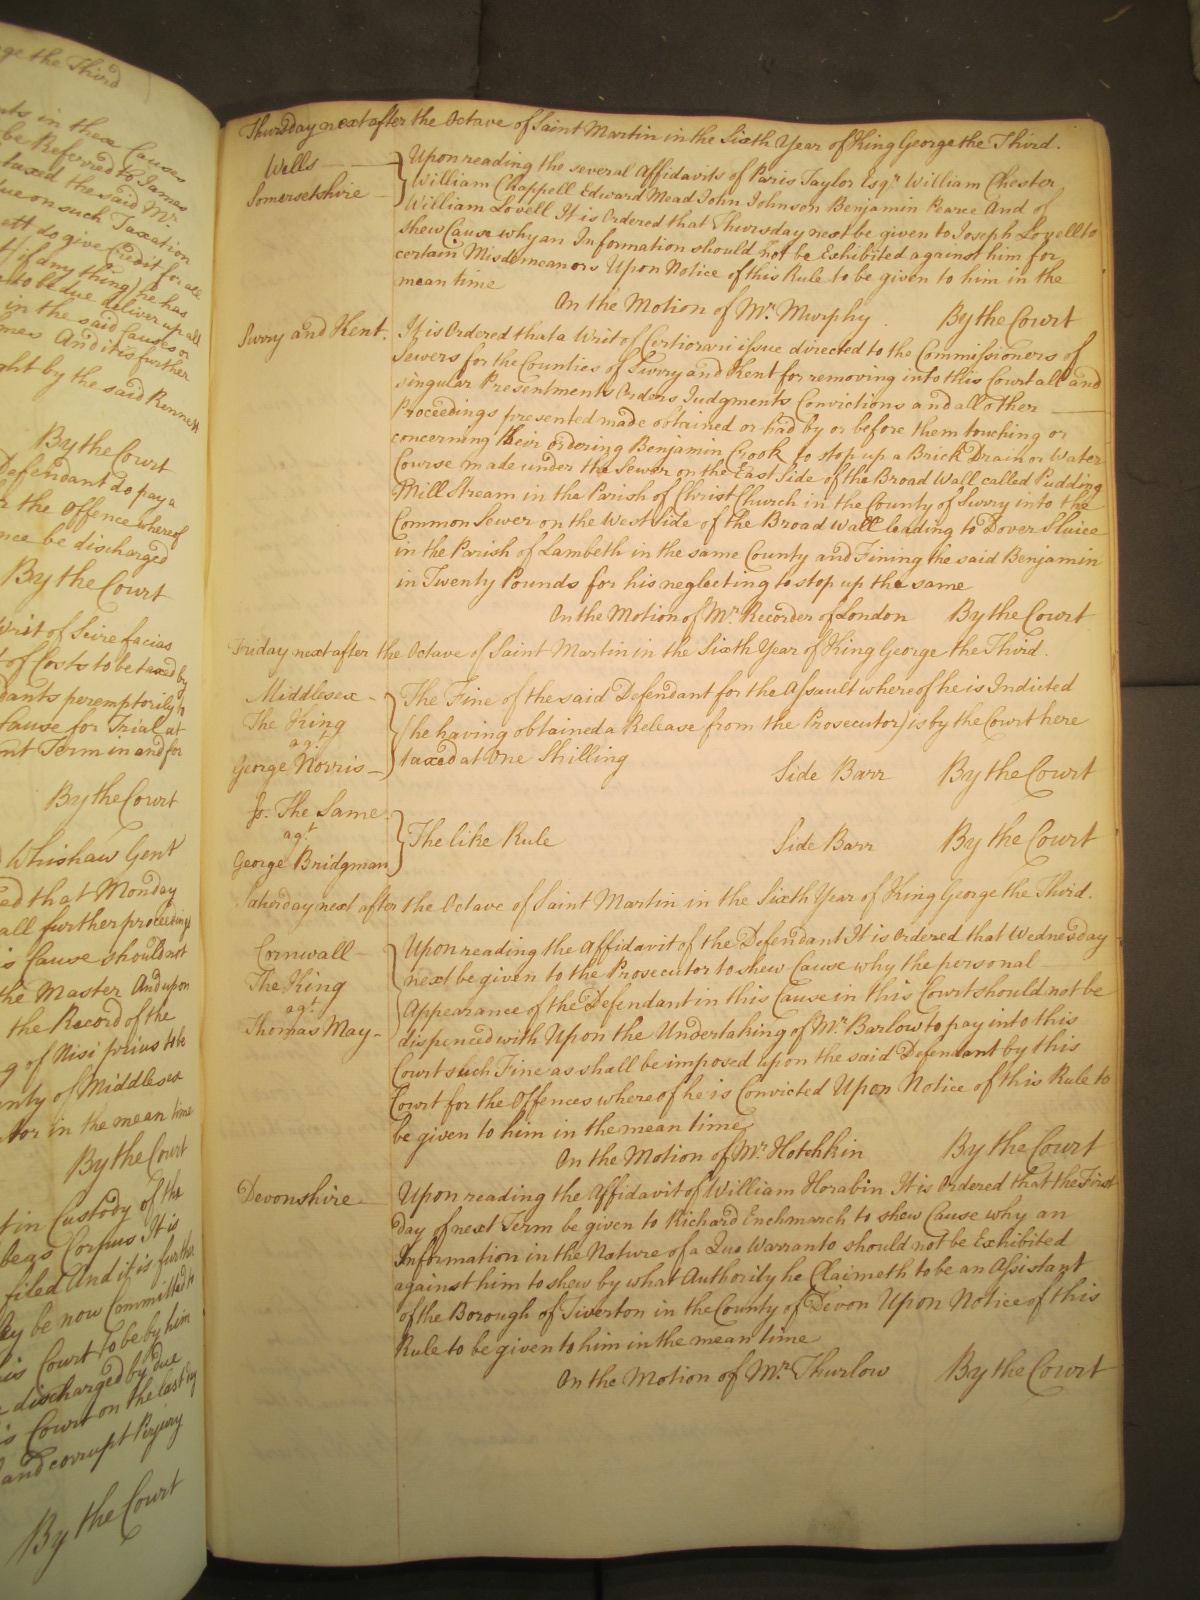 ge the Third
nts in these Causes
be Referred to James
taxed the said Mr.
due on such Taxation
ett to give Credit for all
if any thing) he has
to be due deliver up all
in the said Causes or
mes And it is further
ght by the said Kennett
By the Court
Defendant do pay a
r the Offence whereof
nce be discharged
By the Court
Writ of Scire facias
of Costs to be taxed by
dants peremptorily
Cause for Trial at
nt Term in and for
By the Court
Whishaw Gent
ed that Monday
all further proceedings
is Cause should not
the Master And upon
the Record of the
g of Nisi prius to be
nty of Middlesex
tor in the mean time
By the Court
t in Custody of the
beas Corpus It is
filed And it is further
ay be now Committed to
is Court to be by him
discharged by due
is Court on the last day
and corrupt Perjury
By the Court
Thursday next after the Octave of Saint Martin in the Sixth Year of King George the Third.
Wells
Somersetshire
Upon reading the several Affidavits of Paris Taylor Esqr. William Chester
William Chappell Edward Mead John Johnson Benjamin Pearce And of
William Lovell It is Ordered that Thursday next be given to Joseph Lovell to
shew Cause why an Information should not be Exhibited against him for
certain Misdemeanors Upon Notice of this Rule to be given to him in the
mean time
On the Motion of Mr. Murphy By the Court
Surry and Kent.
It is Ordered that a Writ of Certiorari issue directed to the Commissioners of
Sewers for the Counties of Surry and Kent for removing into this Court all and
singular Presentments Orders Judgments Convictions and all other
Proceedings presented made obtained or had by or before them touching or
concerning their ordering Benjamin Crook to stop up a Brick Drain or Water
Course made under the Sewer on the East Side of the Broad Wall called Pudding
Mill Stream in the Parish of Christ Church in the County of Surry into the
Common Sewer on the West Side of the Broad Wall leading to Dover Sluice
in the Parish of Lambeth in the same County and Fining the said Benjamin
in Twenty Pounds for his neglecting to stop up the same
On the Motion of Mr. Recorder of London By the Court
Friday next after the Octave of Saint Martin in the Sixth Year of King George the Third.
Middlesex
The King
agt.
George Norris
The Fine of the said Defendant for the Assault whereof he is Indicted
(he having obtained a Release from the Prosecutor) is by the Court here
taxed at One Shilling
Side Barr By the Court
So. The Same
agt.
George Bridgman
The like Rule Side Barr By the Court
Saturday next after the Octave of Saint Martin in the Sixth Year of King George the Third.
Cornwall
The King
agt.
Thomas May
Upon reading the Affidavit of the Defendant It is Ordered that Wednesday
next be given to the Prosecutor to shew Cause why the personal
Appearance of the Defendant in this Cause in this Court should not be
dispenced with Upon the Undertaking of Mr. Barlow to pay into this
Court such Fine as shall be imposed upon the said Defendant by this
Court for the Offences whereof he is Convicted Upon Notice of this Rule to
be given to him in the mean time
On the Motion of Mr. Hotchkin By the Court
Devonshire
Upon reading the Affidavit of William Horabin It is Ordered that the First
day of next Term be given to Richard Enchmarch to shew Cause why an
Information in the Nature of a Quo Warranto should not be Exhibited
against him to shew by what Authority he Claimeth to be an Assistant
of the Borough of Tiverton in the County of Devon Upon Notice of this
Rule to be given to him in the mean time
On the Motion of Mr. Thurlow By the Court